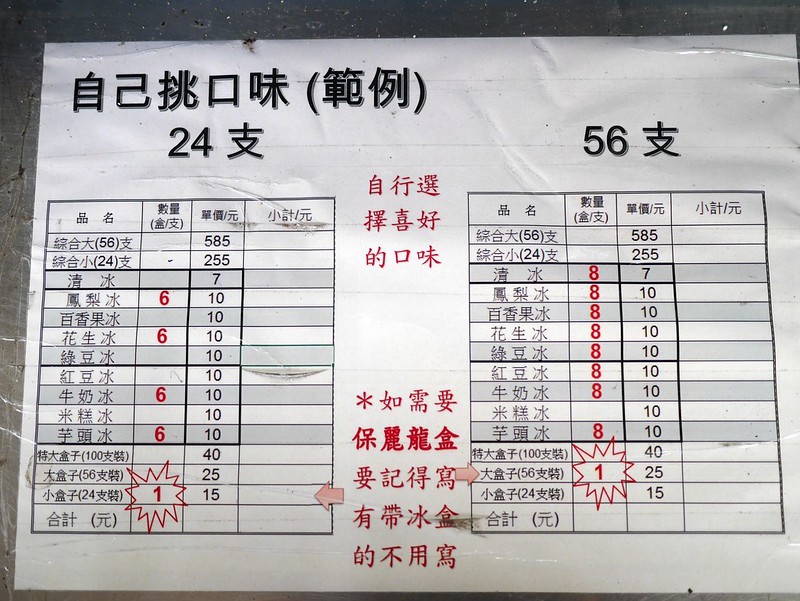 自己挑口味 (範例)
24 支
品 名 數量(盒/支) 單價/元 小計/元
綜合大(56)支 585
綜合小(24)支 - 255
清 冰 7
鳳梨冰 6 10
百香果冰 10
花生冰 6 10
綠豆冰 10
紅豆冰 10
牛奶冰 6 10
米糕冰 10
芋頭冰 6 10
特大盒子(100支裝) 40
大盒子(56支裝) 25
小盒子(24支裝) 1 15
合計 (元)
自行選
擇喜好
的口味
＊如需要
保麗龍盒
要記得寫
有帶冰盒
的不用寫
56 支
品 名 數量(盒/支) 單價/元 小計/元
綜合大(56)支 585
綜合小(24)支 255
清 冰 8 7
鳳梨冰 8 10
百香果冰 8 10
花生冰 8 10
綠豆冰 8 10
紅豆冰 8 10
牛奶冰 8 10
米糕冰 10
芋頭冰 8 10
特大盒子(100支裝) 40
大盒子(56支裝) 1 25
小盒子(24支裝) 15
合計 (元)